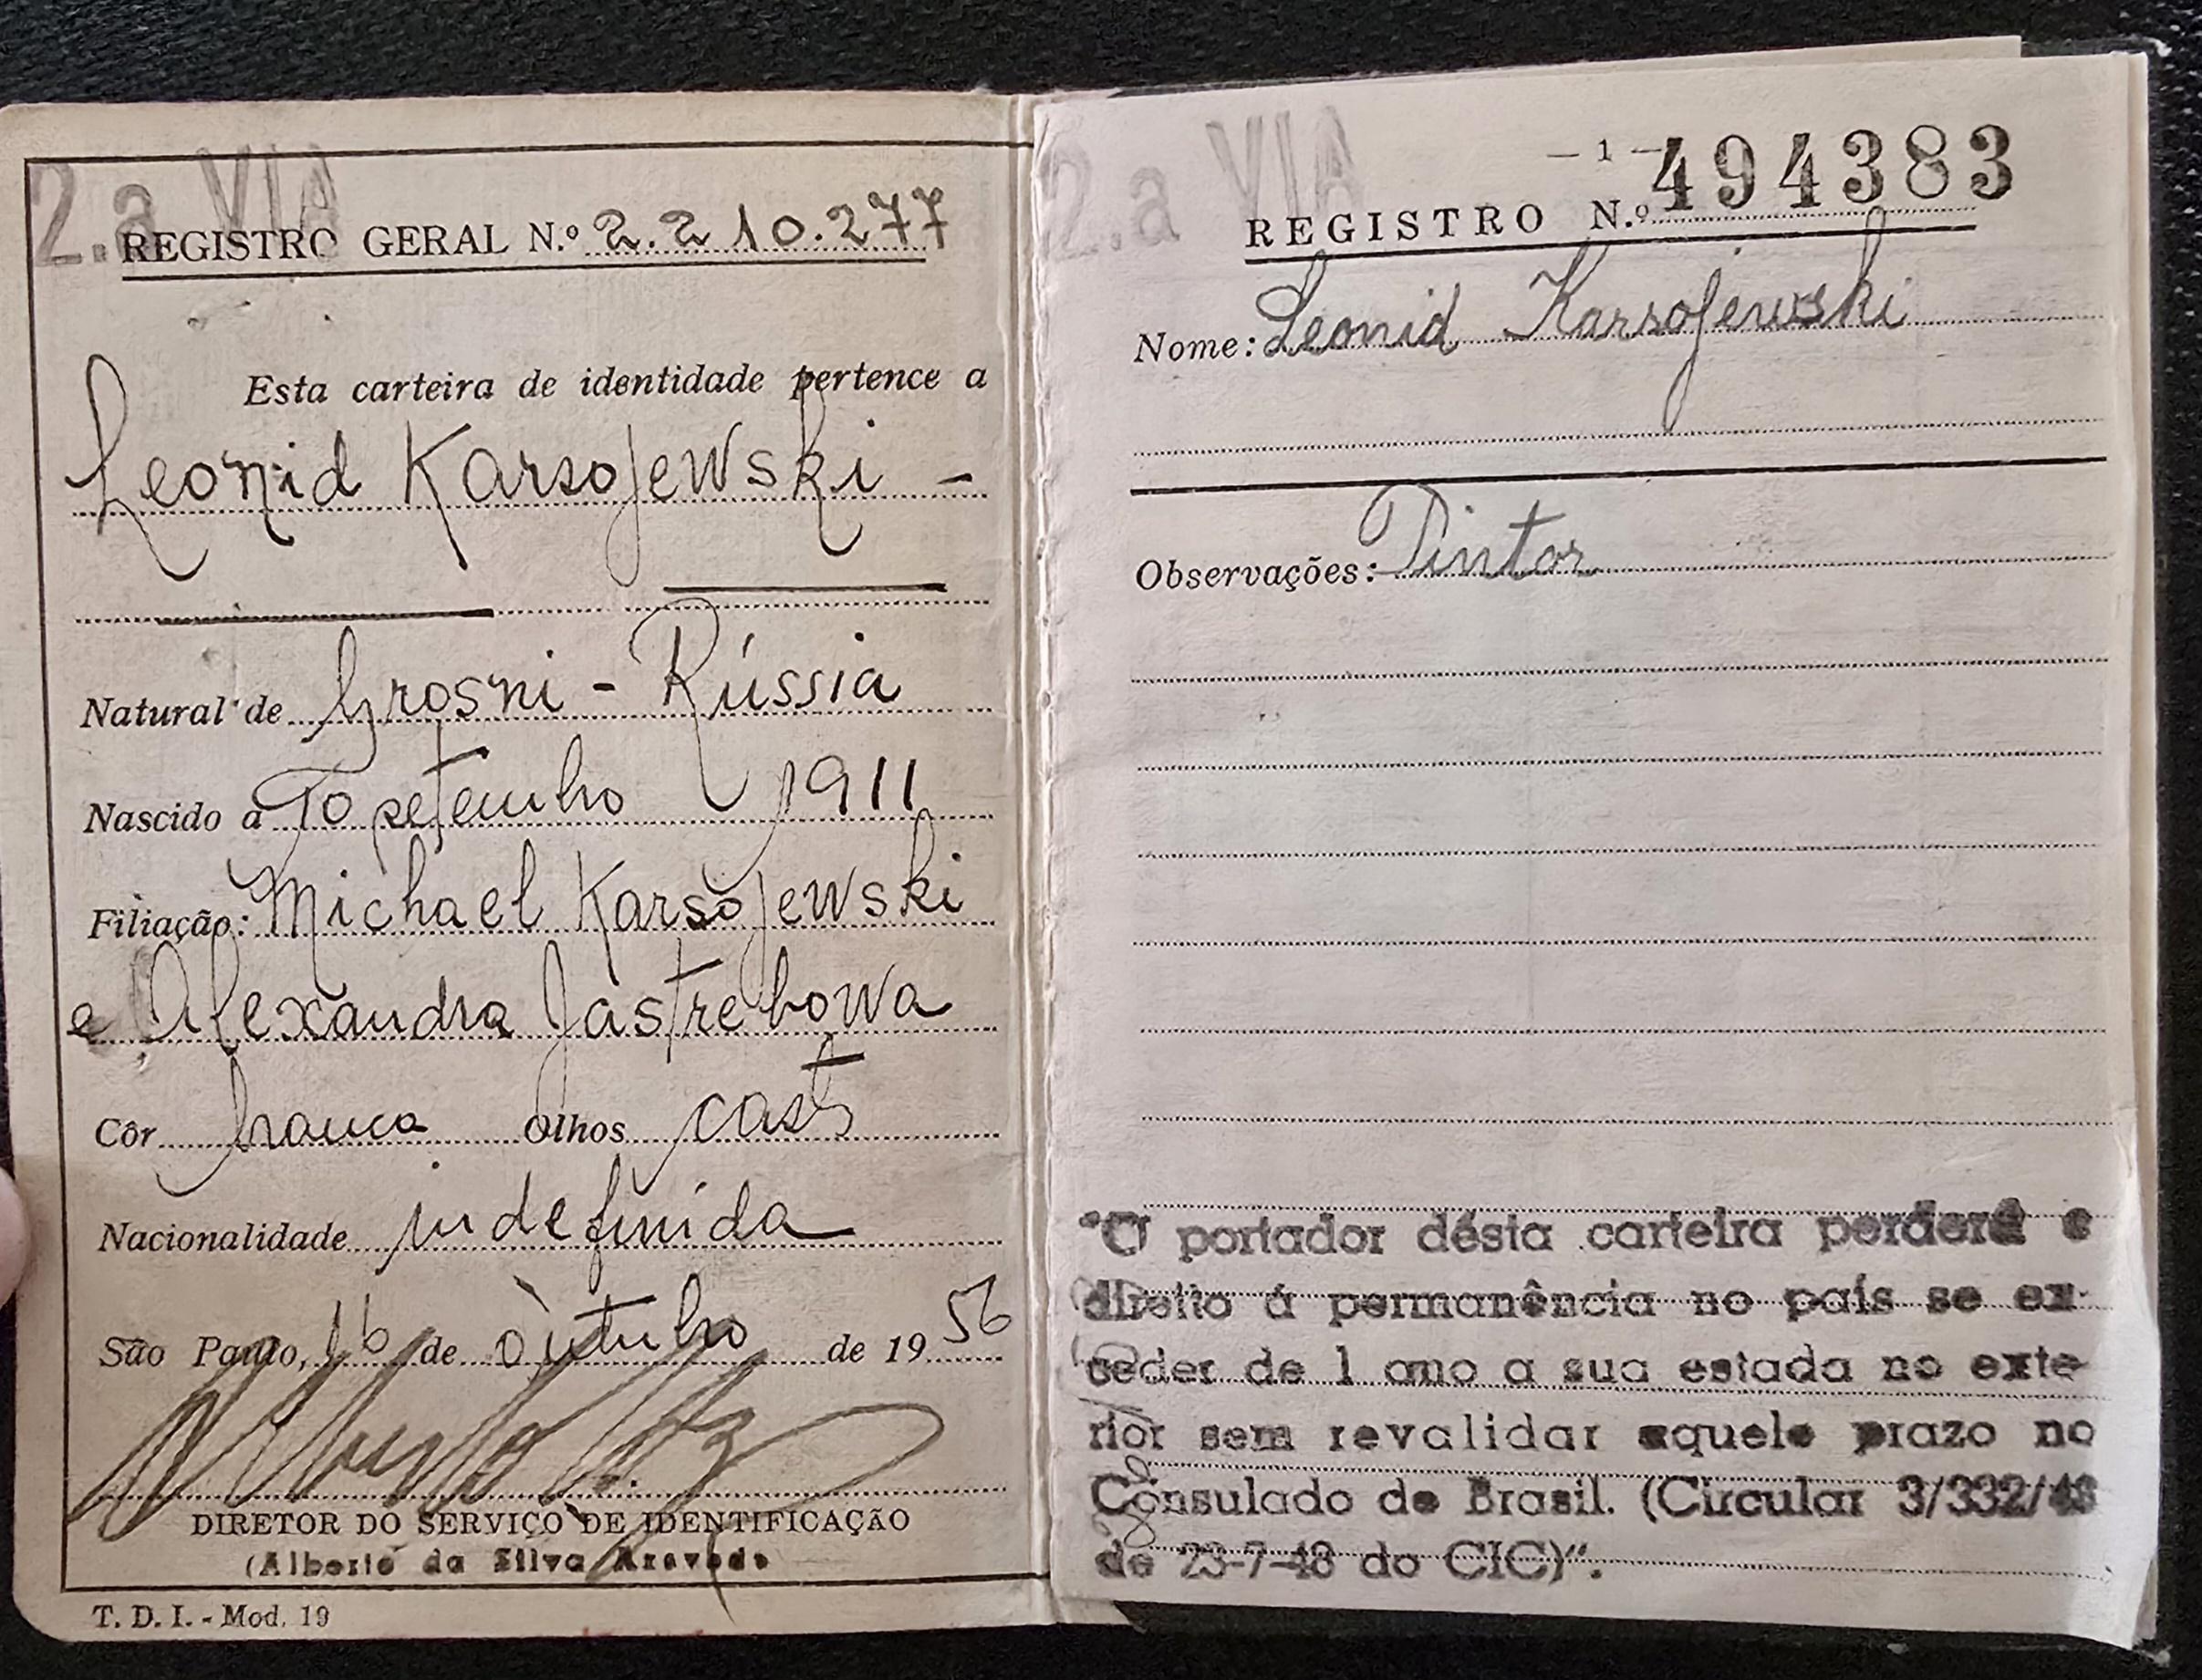 2.a VIA
REGISTRO GERAL N.º 2.210.277
Esta carteira de identidade pertence a
Leonid Karsojewski -
Natural de Grosni - Rússia
Nascido a 10 setembro 1911
Filiação: Michael Karsojewski
e Alexandra Jastrebowa
Côr branca olhos casts
Nacionalidade indefinida
São Paulo, 16 de outubro de 1956
DIRETOR DO SERVIÇO DE IDENTIFICAÇÃO
(Alberto da Silva Azevedo
T. D. I. - Mod. 19
2.a VIA
— 1 —
REGISTRO N.º 494383
Nome: Leonid Karsojewski
Observações: Pintor
"O portador désta carteira perderá o
direito á permanência no país se ex-
ceder de 1 ano a sua estada no exte-
rior sem revalidar aquele prazo no
Consulado do Brasil. (Circular 3/332/48
de 23-7-48 do CIC)".